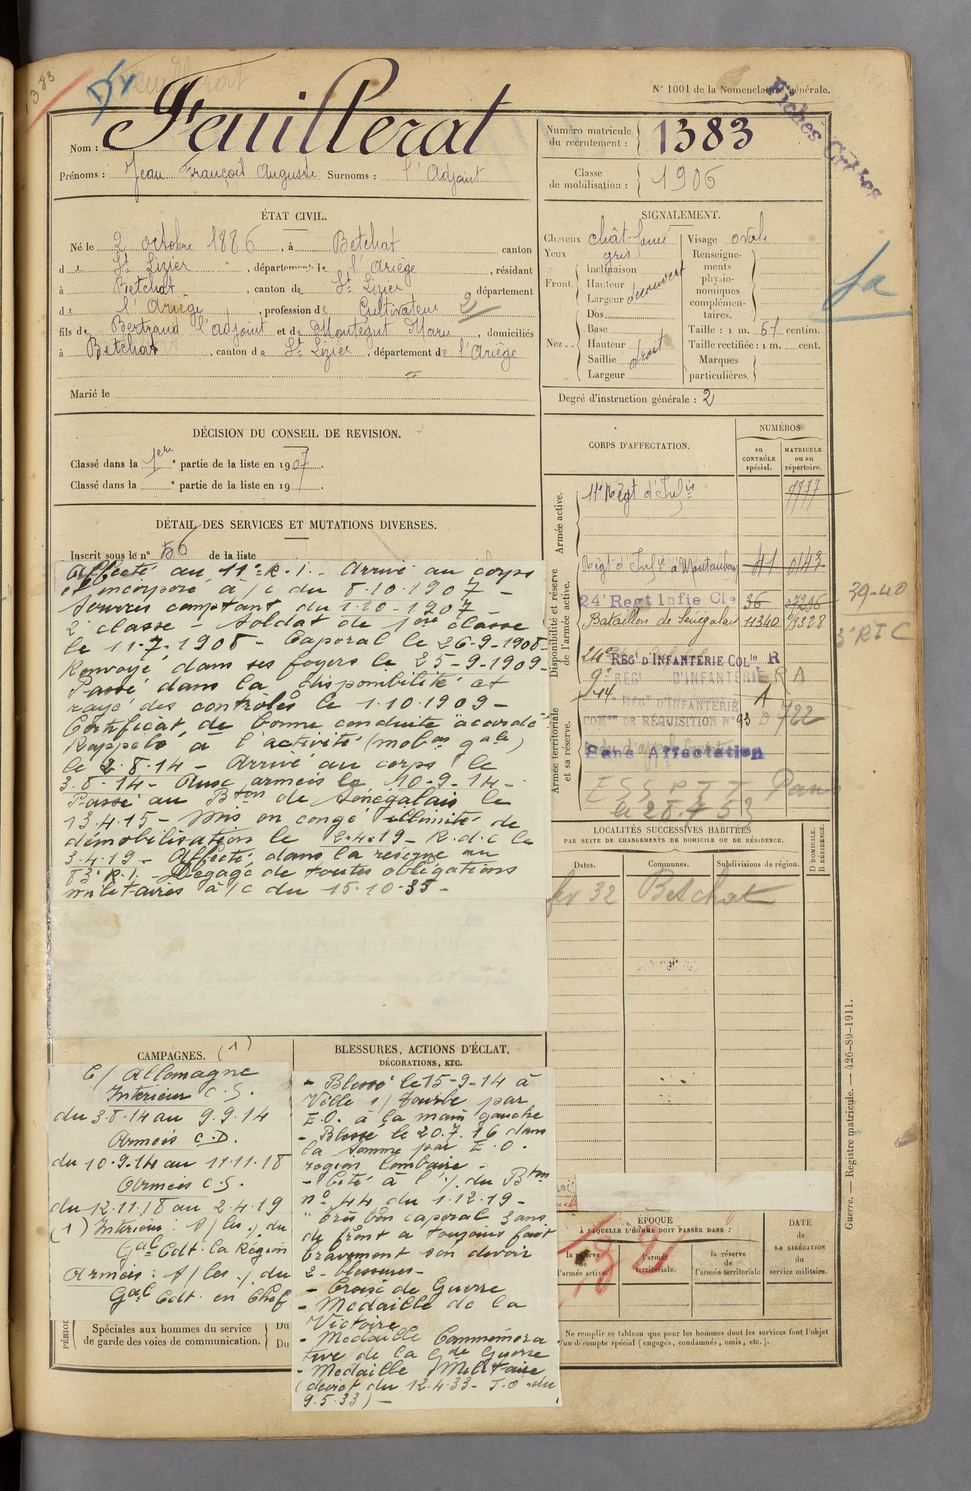 1383
N° 1001 de la Nomenclature générale.
Fiches
Nom : Feuillerat
Prénoms : Jean François Auguste Surnoms : l'Adjoint
Numéro matricule du recrutement : 1383
Classe de mobilisation : 1906
ÉTAT CIVIL.
Né le 2 octobre 1886, à Betchat canton
de St Lizier, département de l'Ariège, résidant
à Betchat, canton de St Lizier département
de l'Ariège, profession de Cultivateur
2
fils de Bertrand l'adjoint et de Montégut Marie domiciliés
à Betchat, canton de St Lizier, département de l'Ariège
Marié le
SIGNALEMENT.
Cheveux chât-foncé
Yeux gris
Front. Inclinaison
Hauteur
Largeur découvert
Nez. Dos
Base
Hauteur
Saillie droit
Largeur
Visage ovale
Renseignements physionomiques complémentaires.
Taille : 1 m. 61 centim.
Taille rectifiée : 1 m. cent.
Marques particulières.
Degré d'instruction générale : 2
DÉCISION DU CONSEIL DE REVISION.
Classé dans la 1ère partie de la liste en 1907.
Classé dans la e partie de la liste en 19 .
DÉTAIL DES SERVICES ET MUTATIONS DIVERSES.
Inscrit sous le n° 56 de la liste
Affecté au 11e R.I. - Arrivé au corps
et incorporé à/c du 8.10.1907 -
Services comptant du 1.10-1907 -
2e classe - Soldat de 1ère classe
le 11-7-1908 - Caporal le 26-9-1908 -
Renvoyé dans ses foyers le 25-9-1909 -
Passé dans la disponibilité et
rayé des contrôles le 1.10.1909 -
Certificat de bonne conduite "accordé"
Rappelé à l'activité (mobon gale)
le 2-8-14 - Arrivé au corps le
3.8-14 - Aux armées le 10-9-14 -
Passé au Bton de Sénégalais le
13.4.15 - Mis en congé illimité de
démobilisation le 2.4.19 - R.d.c le
3.4.19 - Affecté dans la réserve au
83e R.I. - Dégagé de toutes obligations
militaires à/c du 15.10.35 -
CORPS D'AFFECTATION.
NUMÉROS
au CONTRÔLE spécial.
MATRICULE ou au répertoire.
Armée active.
11e Régt d'Infie 7777
Disponibilité et réserve de l'armée active.
Régt d'Infie à Montauban 41 0143
24e Regt Infie Cle 36 07206
Bataillon de Sénégalais 11340 79328
39-40
3e RIC
24e REGt D'INFANTERIE COLle R
9e REGt D'INFANTERIE R A
Armée territoriale et sa réserve.
14e REGt D'INFANTERIE A
COMon DE RÉQUISITION N° 93 D 722
Sans Affectation
Paris
LOCALITÉS SUCCESSIVES HABITÉES
PAR SUITE DE CHANGEMENTS DE DOMICILE OU DE RÉSIDENCE.
Dates. Communes. Subdivisions de région.
D DOMICILE. R RÉSIDENCE.
fev 32 Betchat
CAMPAGNES. (1)
C/ Allemagne
Intérieur C.S.
du 3.8.14 au 9.9.14
Armées C.D.
du 10.9.14 au 11.11.18
Armées C.S.
du 12.11.18 au 2.4.19
(1) Intérieur : S/ les ./. du
Gal Cdt la Région
Armées : S/ les ./. du
Gal Cdt en Chef
BLESSURES, ACTIONS D'ÉCLAT,
DÉCORATIONS, ETC.
- Blessé le 15-9-14 à
Ville s/ Tourbe par
E.O. à la main gauche
- Blessé le 20.7.16 dans
la Somme par E.O.
région lombaire -
- Cité à l'./. du Bton
n° 44 du 1.12.19 -
"très bon caporal 3 ans
de front a toujours fait
bravement son devoir
2 - blessures -
- Croix de Guerre
- Médaille de la
Victoire
- Médaille Commémora
tive de la Gde Guerre
- Médaille Militaire
(décret du 12.4.33 - J.O. du
9.5.33) -
Spéciales aux hommes du service
de garde des voies de communication.
Du
Du
EPOQUE
À LAQUELLE L'HOMME DOIT PASSER DANS :
la réserve de l'armée active.
l'armée territoriale.
la réserve de l'armée territoriale
DATE de LA LIBÉRATION du service militaire.
Ne remplir ce tableau que pour les hommes dont les services font l'objet
d'un décompte spécial (engagés, condamnés, omis, etc.).
Guerre. — Registre matricule. — 426-89-1911.